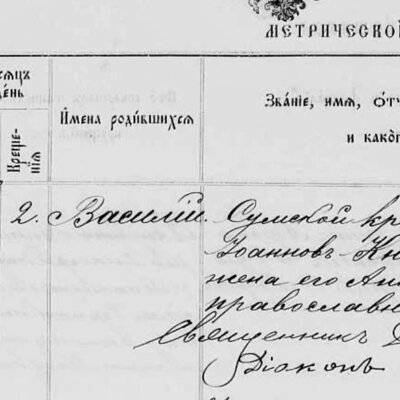 МЕТРИЧЕСКОЙ
сяцъ
день
Крещенія
Имена родившихся
Званіе, имя, отч
и какого
2. Василій. Сумской кр
Іоанновъ Кн
жена его Ан
православн
Священникъ
Діаконъ